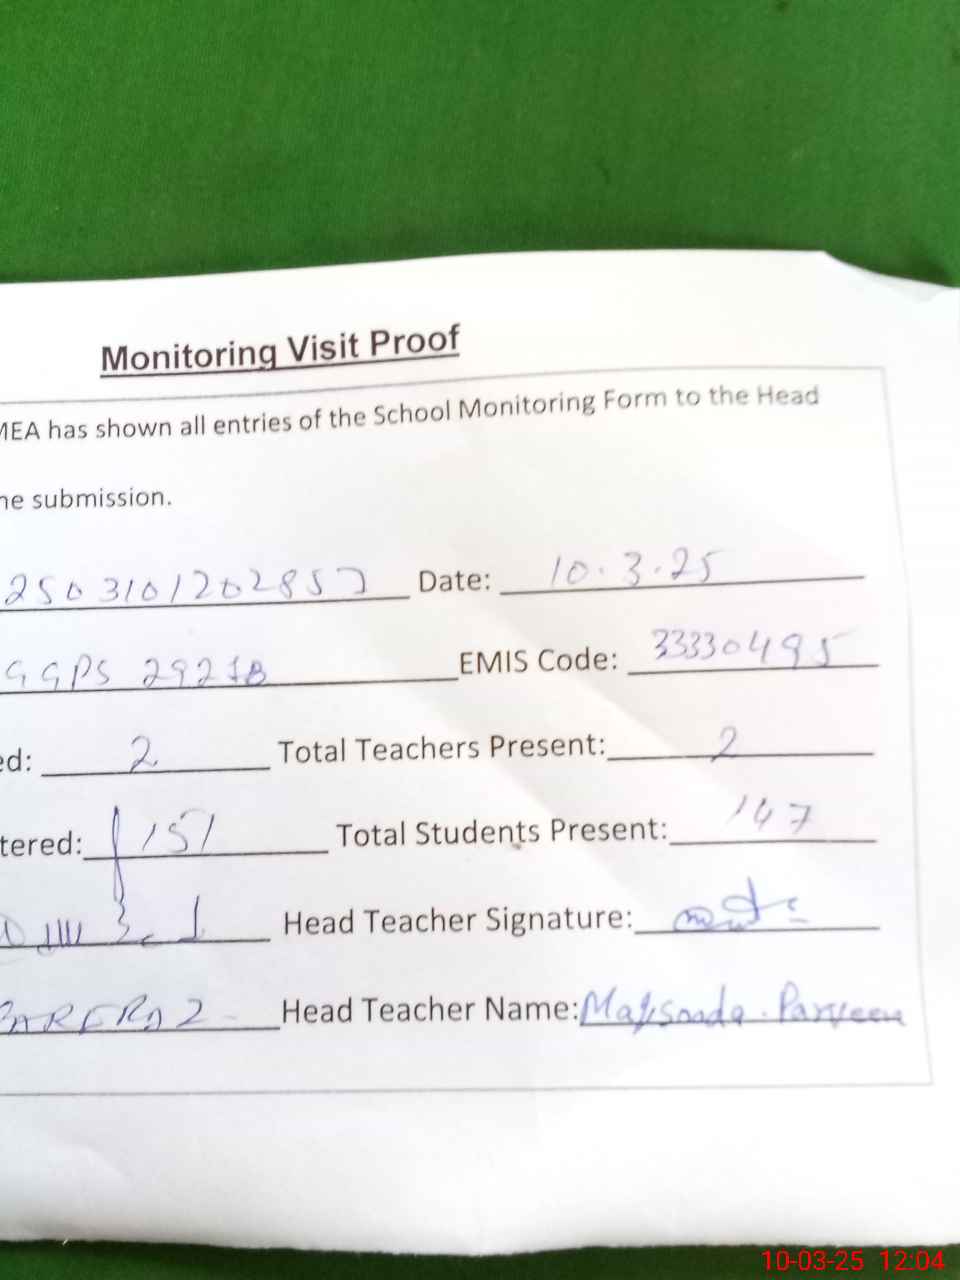 Monitoring Visit Proof
MEA has shown all entries of the School Monitoring Form to the Head
ne submission.
2503101202857 Date: 10.3.25
GGPS 292 EMIS Code: 33330495
ed: 2 Total Teachers Present: 2
tered: 151 Total Students Present: 147
Head Teacher Signature:
Head Teacher Name: Parveen
10-03-25 12:04